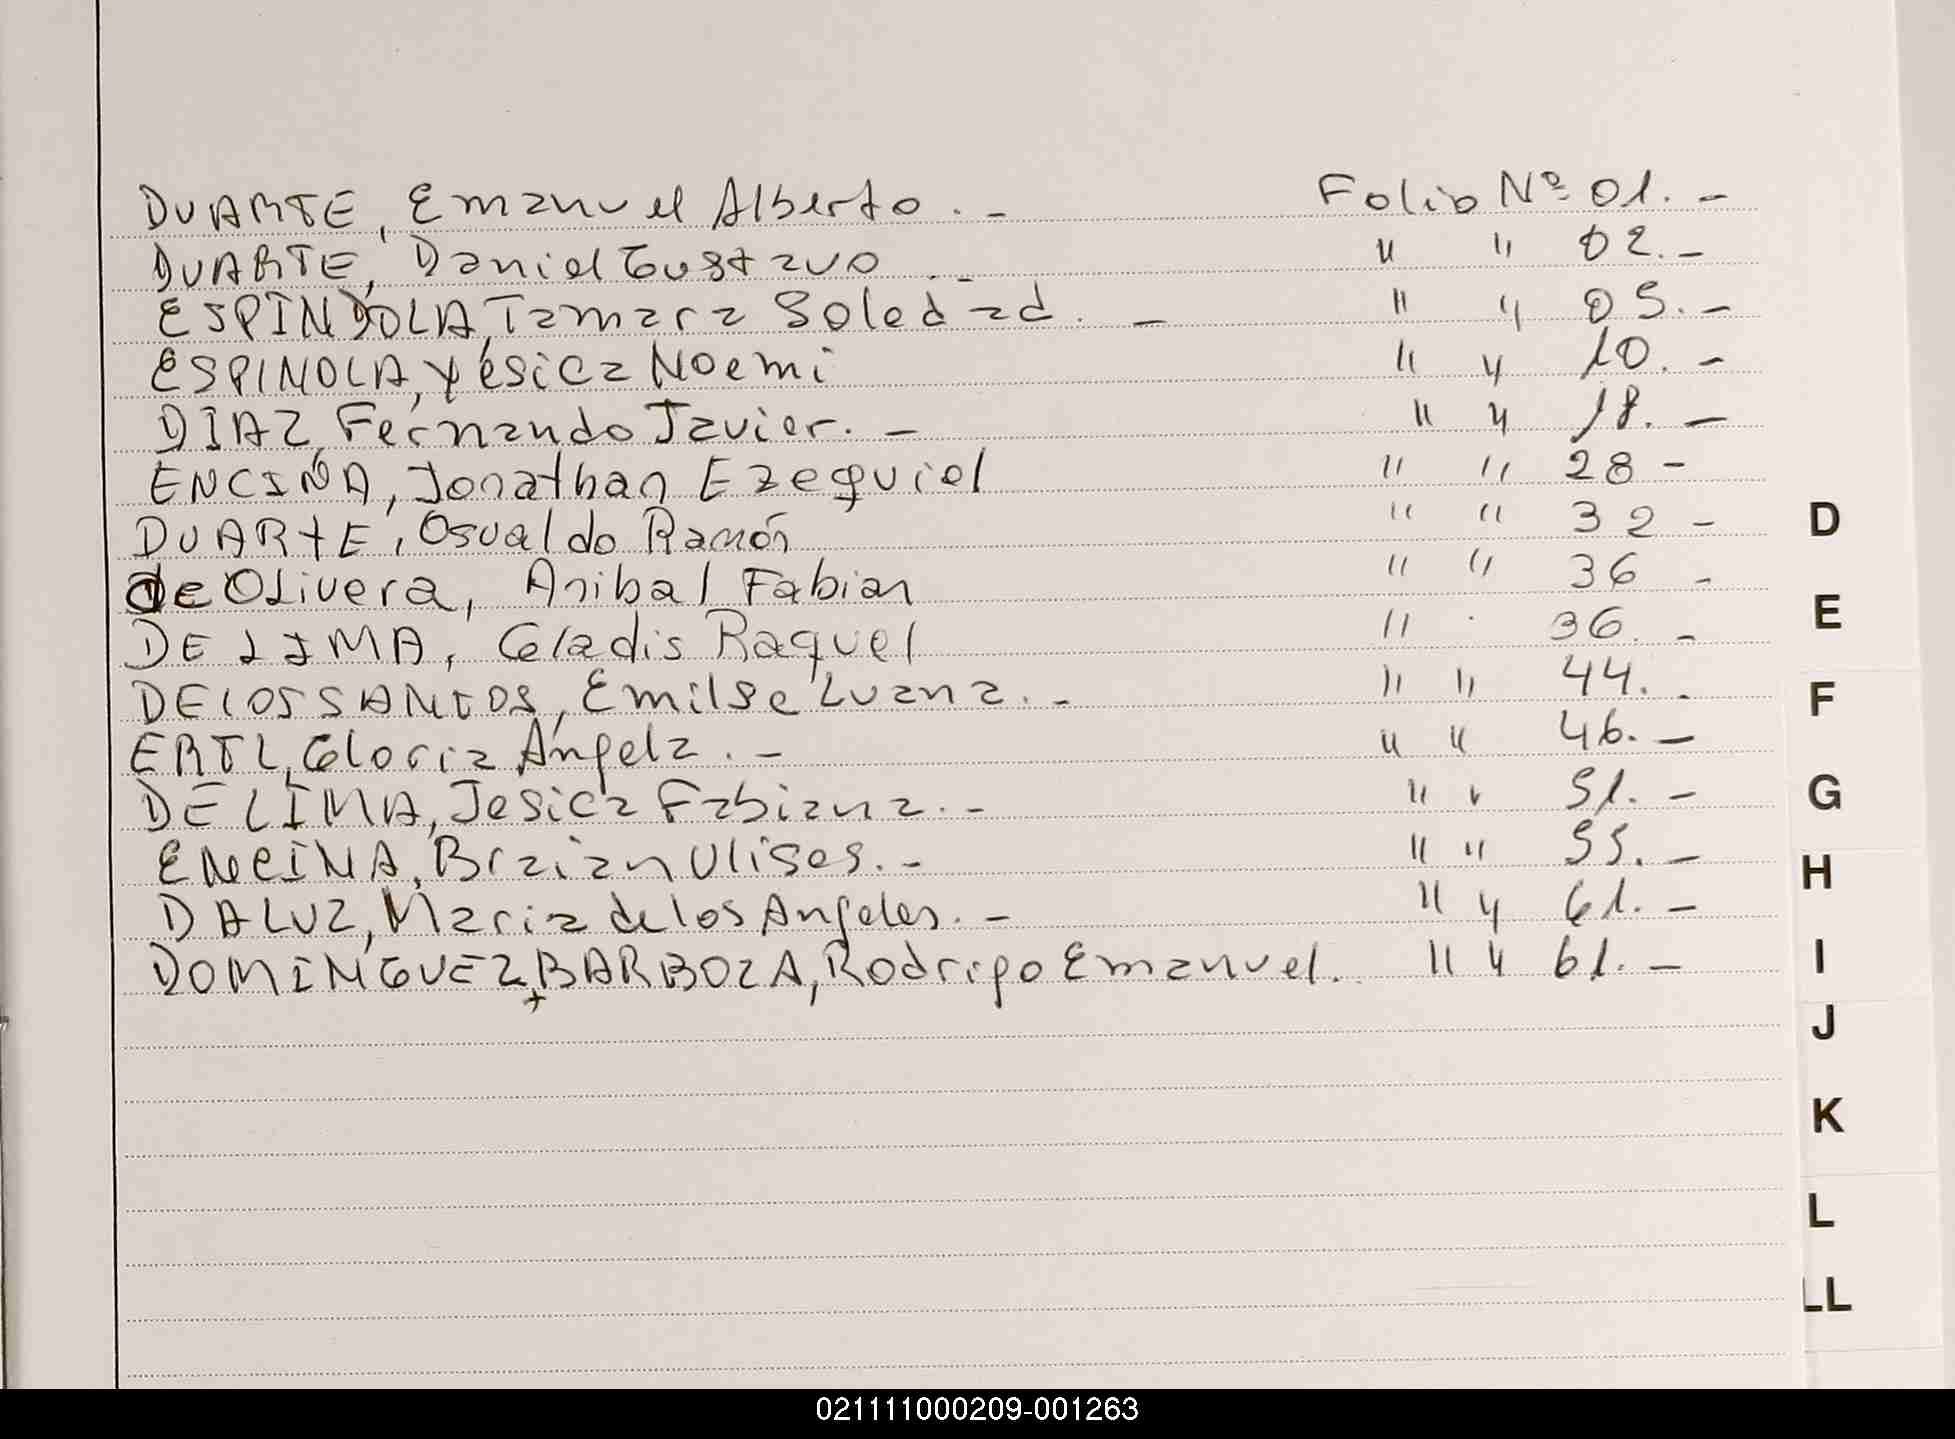 DUARTE, Emanuel Alberto. - Folio Nº 01. -
DUARTE, Daniel Gustavo . - " " 02. -
ESPINDOLA, Tamara Soledad. - " " 05. -
ESPINOLA, Yésica Noemi " " 10. -
DIAZ, Fernando Javier. - " " 18. -
ENCINA, Jonathan Ezequiel " " 28 -
DUARTE, Osvaldo Ramón " " 32 -
de OLivera, Anibal Fabian " " 36 -
DE LIMA, Gladis Raquel " 36. -
DE LOS SANTOS, Emilse Luana. - " " 44. -
ERTL, Gloria Ángela. - " " 46. -
DE LIMA, Jesica Fabiana. - " " 51. -
ENCINA, Braian Ulises. - " " 55. -
DA LUZ, Maria de los Angeles. - " " 61. -
DOMINGUEZ, BARBOZA, Rodrigo Emanuel. " " 61. -
D
E
F
G
H
I
J
K
L
LL
021111000209-001263